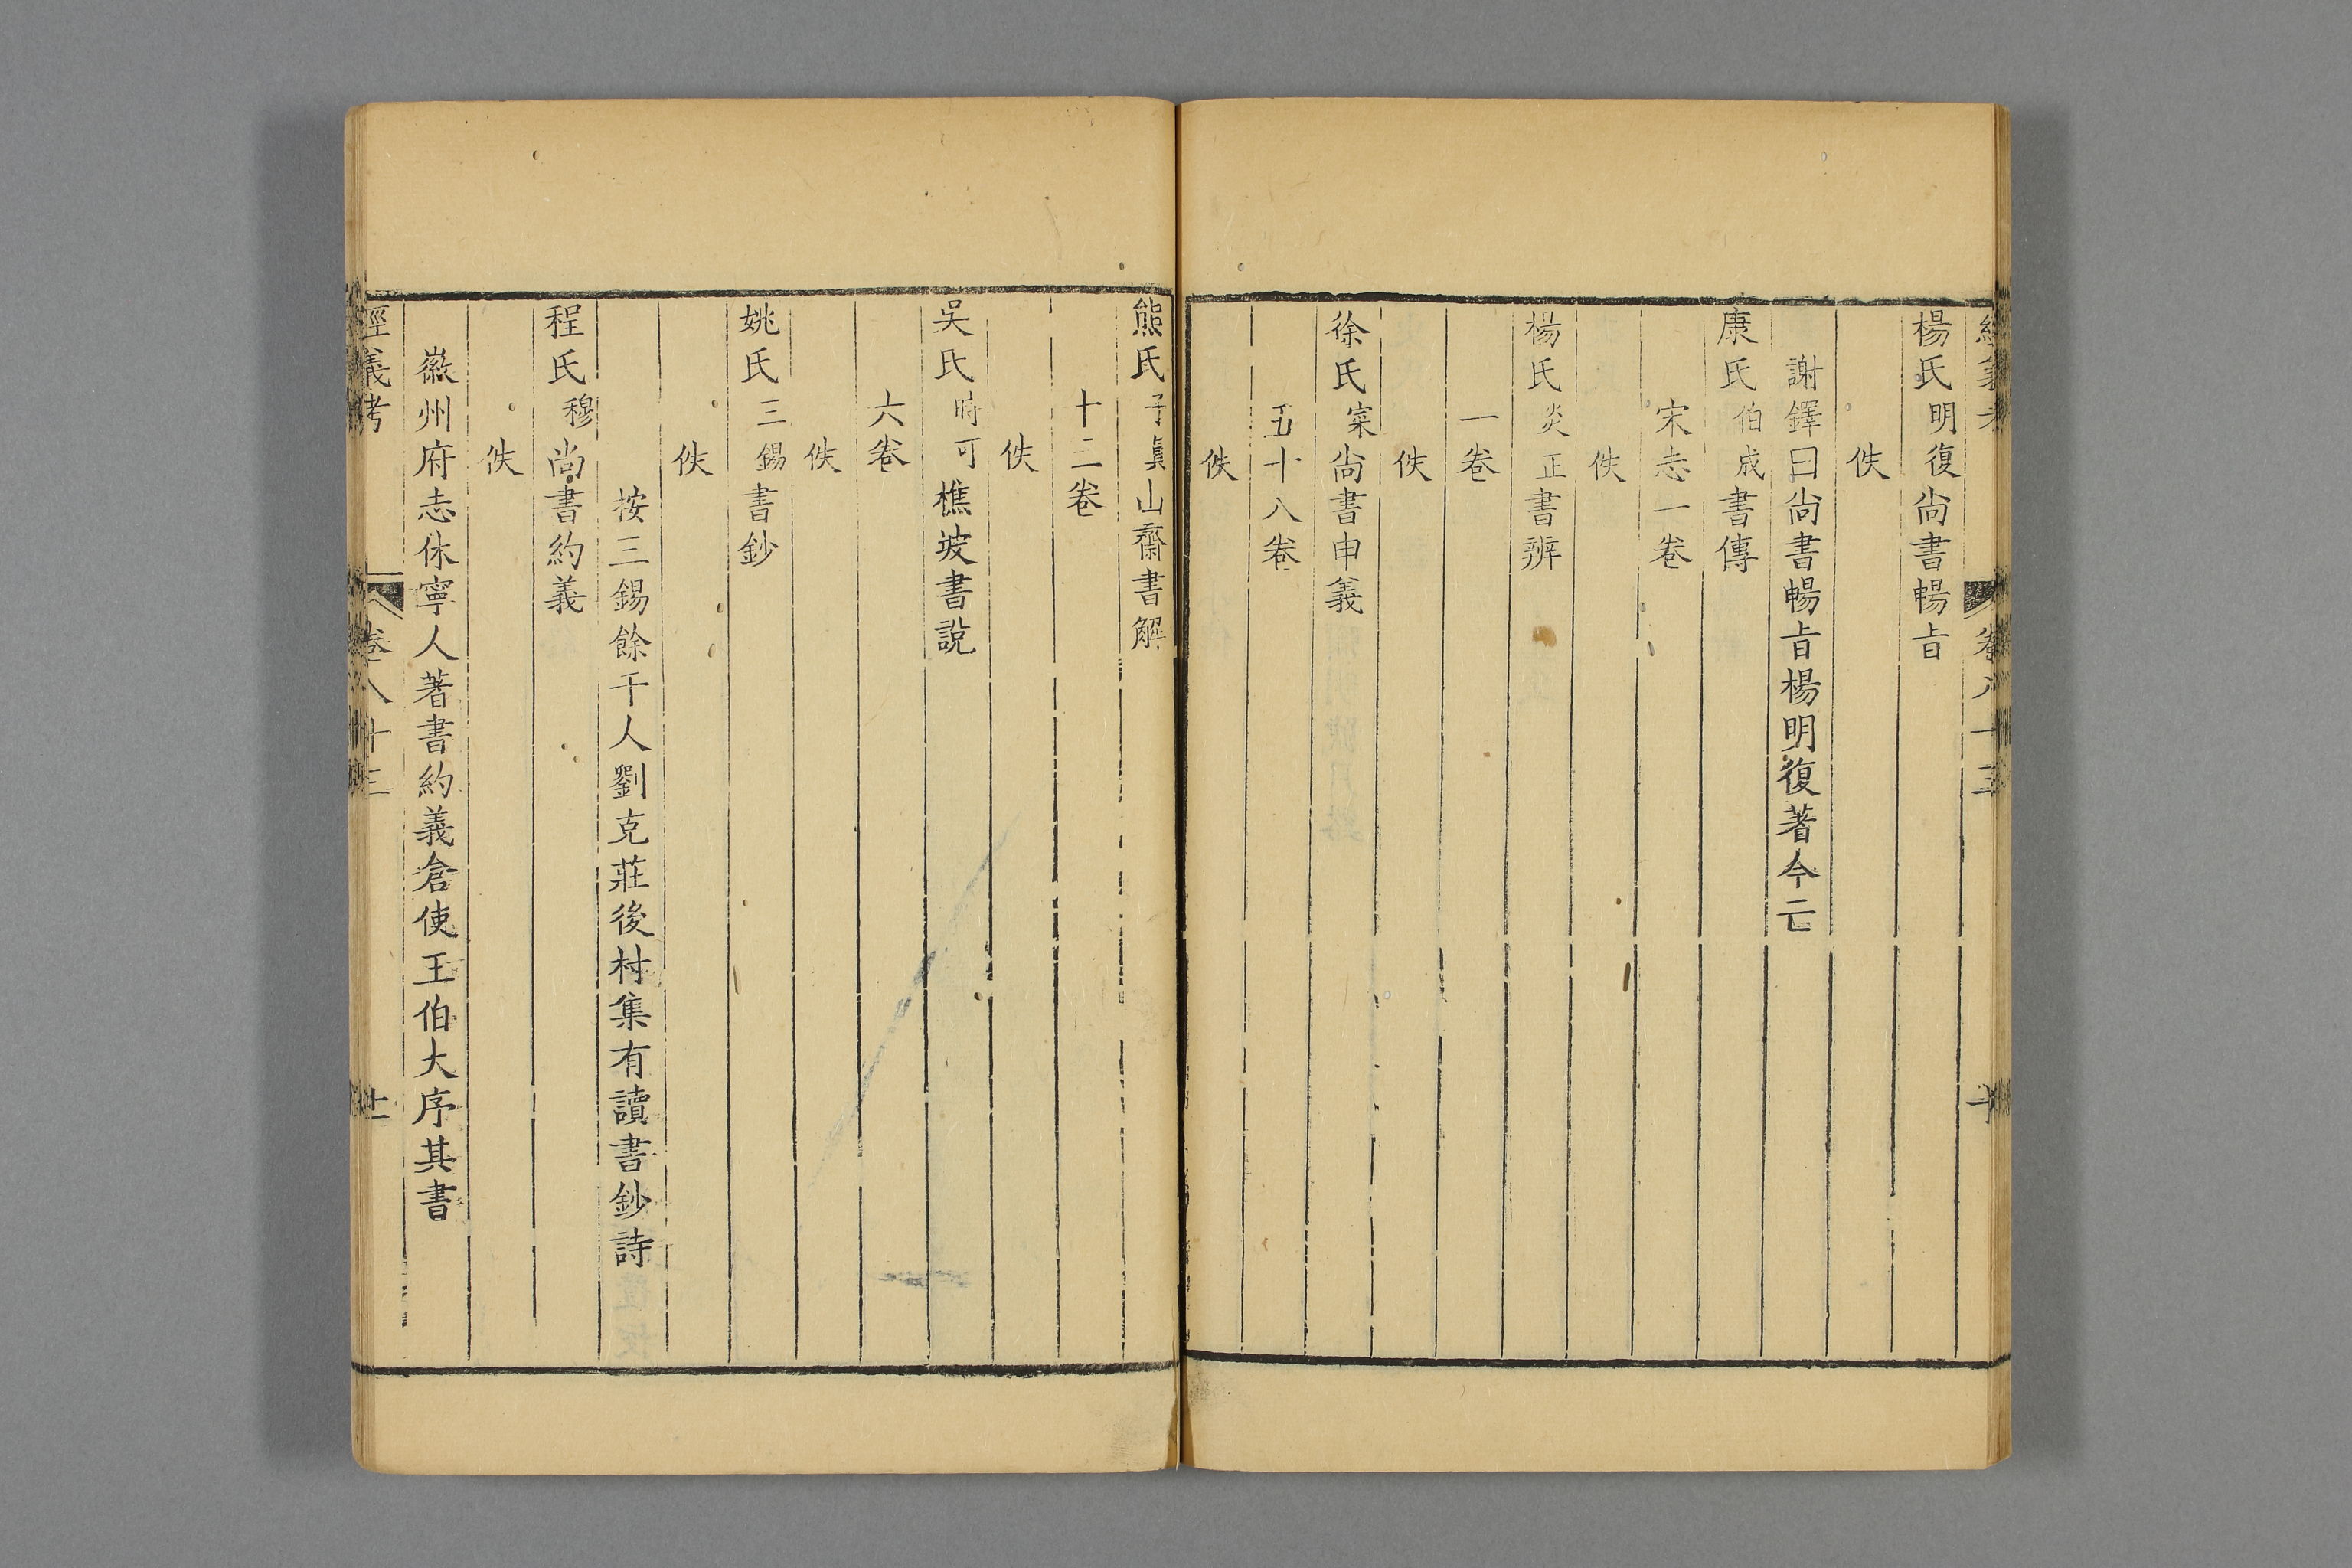 經義考 卷八十三 十
楊氏明復尚書暢旨
佚
謝鐸曰尚書暢旨楊明復著今亡
康氏伯成書傳
宋志一卷
佚
楊氏炎正書辨
一卷
佚
徐氏寀尚書申義
五十八卷
佚
熊氏子眞山齋書解
十二卷
佚
吳氏時可樵坡書說
六卷
佚
姚氏三錫書鈔
佚
按三錫餘干人劉克莊後村集有讀書鈔詩
程氏穆尚書約義
佚
徽州府志休寧人著書約義倉使王伯大序其書
經義考 卷八十三 十一